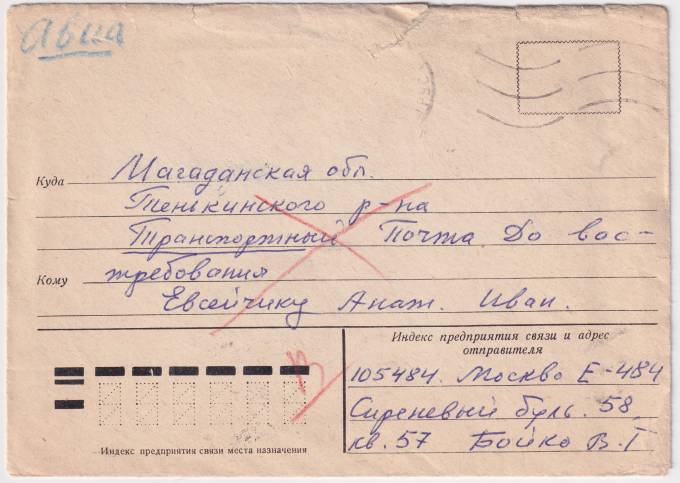 Авиа
Куда Магаданская обл.
Тенькинского р-на
Транспортный Почта До вос-
Кому требования
Евсейчику Анат. Иван.
Индекс предприятия связи и адрес
отправителя
105484. Москва Е-484
Сиреневый буль. 58,
кв. 57 Бойко В.Г
Индекс предприятия связи места назначения